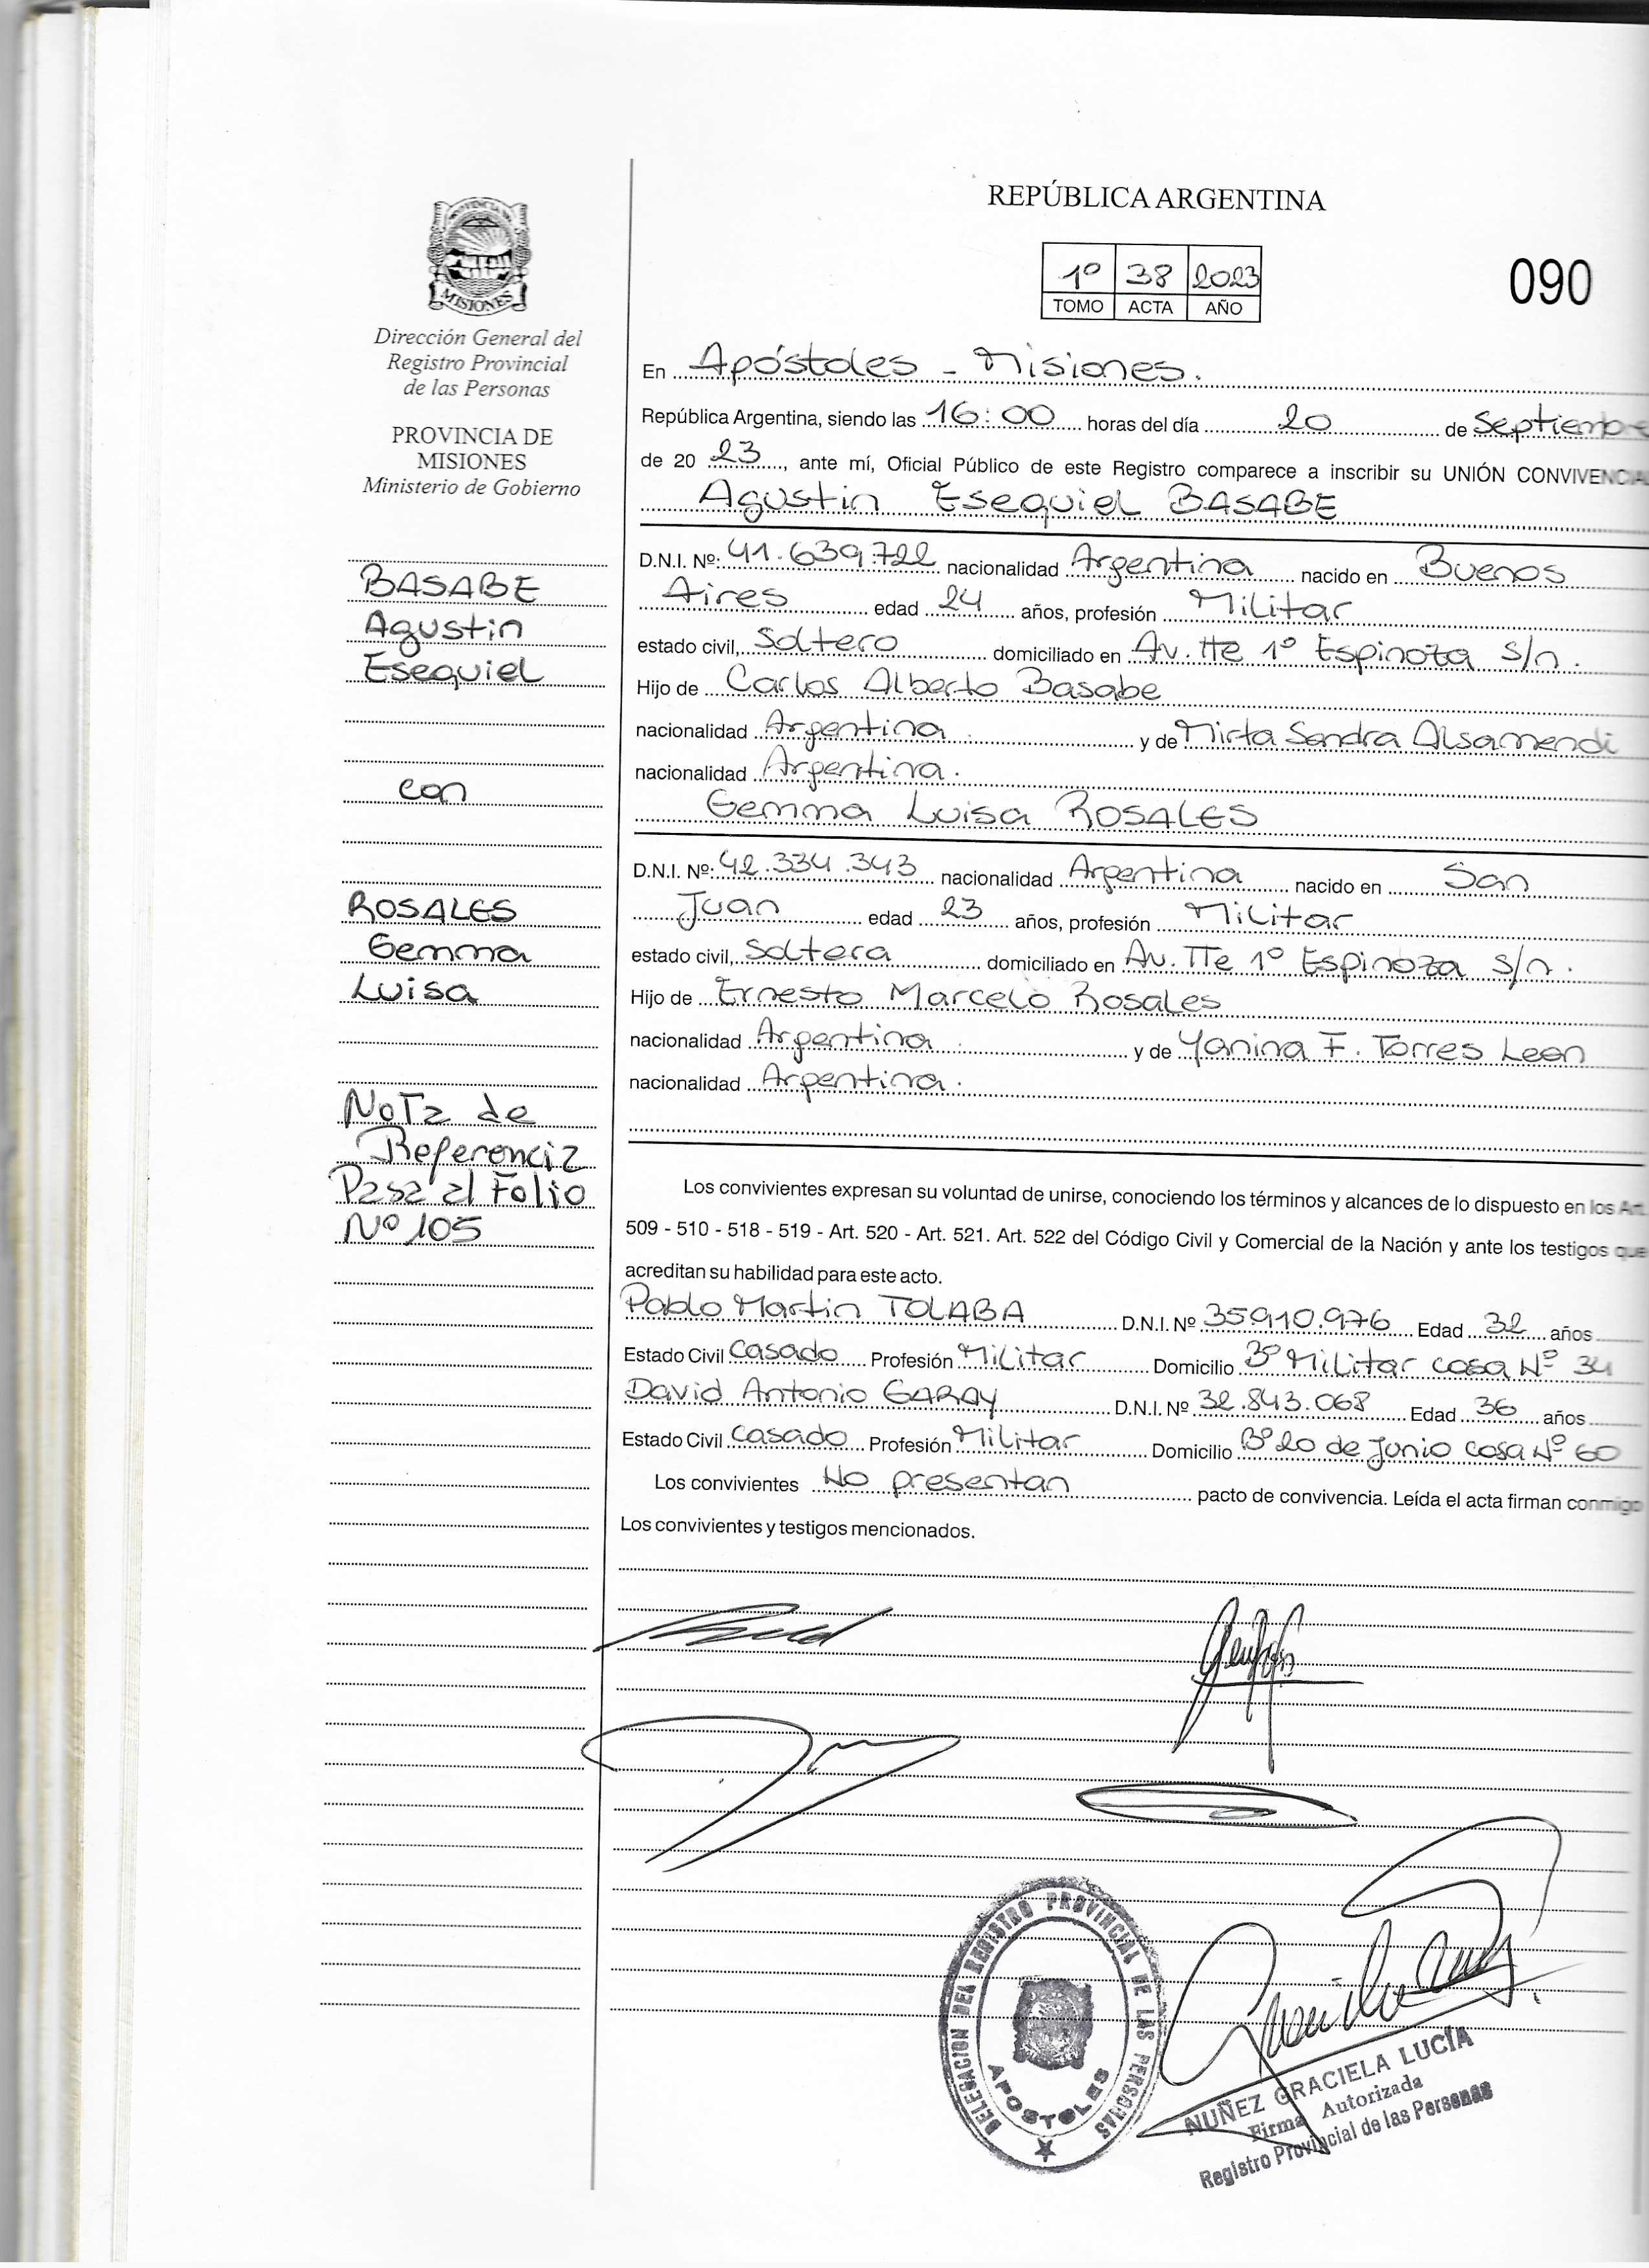 REPÚBLICA ARGENTINA
1º 38 2023
TOMO ACTA AÑO
090
PROVINCIA DE
MISIONES
Dirección General del
Registro Provincial
de las Personas
PROVINCIA DE
MISIONES
Ministerio de Gobierno
BASABE
Agustin
Esequiel
con
ROSALES
Gemma
Luisa
Nota de
Referencia
Pasa al Folio
Nº 105
En Apóstoles - Misiones.
República Argentina, siendo las 16:00 horas del día 20 de Septiembre
de 20 23, ante mí, Oficial Público de este Registro comparece a inscribir su UNIÓN CONVIVENCIA
Agustin Esequiel BASABE
D.N.I. Nº: 41.639.722 nacionalidad Argentina nacido en Buenos
Aires edad 24 años, profesión Militar
estado civil, Soltero domiciliado en Av. tte 1º Espinoza s/n.
Hijo de Carlos Alberto Basabe
nacionalidad Argentina y de Mirta Sandra Alsamendi
nacionalidad Argentina.
Gemma Luisa ROSALES
D.N.I. Nº: 42.334.343 nacionalidad Argentina nacido en San
Juan edad 23 años, profesión Militar
estado civil, Soltera domiciliado en Av. TTe 1º Espinoza s/n.
Hijo de Ernesto Marcelo Rosales
nacionalidad Argentina y de Yanina F. Torres Leon
nacionalidad Argentina.
Los convivientes expresan su voluntad de unirse, conociendo los términos y alcances de lo dispuesto en los Art.
509 - 510 - 518 - 519 - Art. 520 - Art. 521. Art. 522 del Código Civil y Comercial de la Nación y ante los testigos que
acreditan su habilidad para este acto.
Pablo Martin TOLABA D.N.I. Nº 35.910.976 Edad 32 años
Estado Civil Casado Profesión Militar Domicilio Bº Militar casa Nº 34
David Antonio GARAY D.N.I. Nº 32.843.068 Edad 36 años
Estado Civil Casado Profesión Militar Domicilio Bº 20 de Junio casa Nº 60
Los convivientes No presentan pacto de convivencia. Leída el acta firman conmigo
Los convivientes y testigos mencionados.
DELEGACION DEL REGISTRO PROVINCIAL DE LAS PERSONAS
APOSTOLES
NUÑEZ GRACIELA LUCÍA
Firma Autorizada
Registro Provincial de las Personas